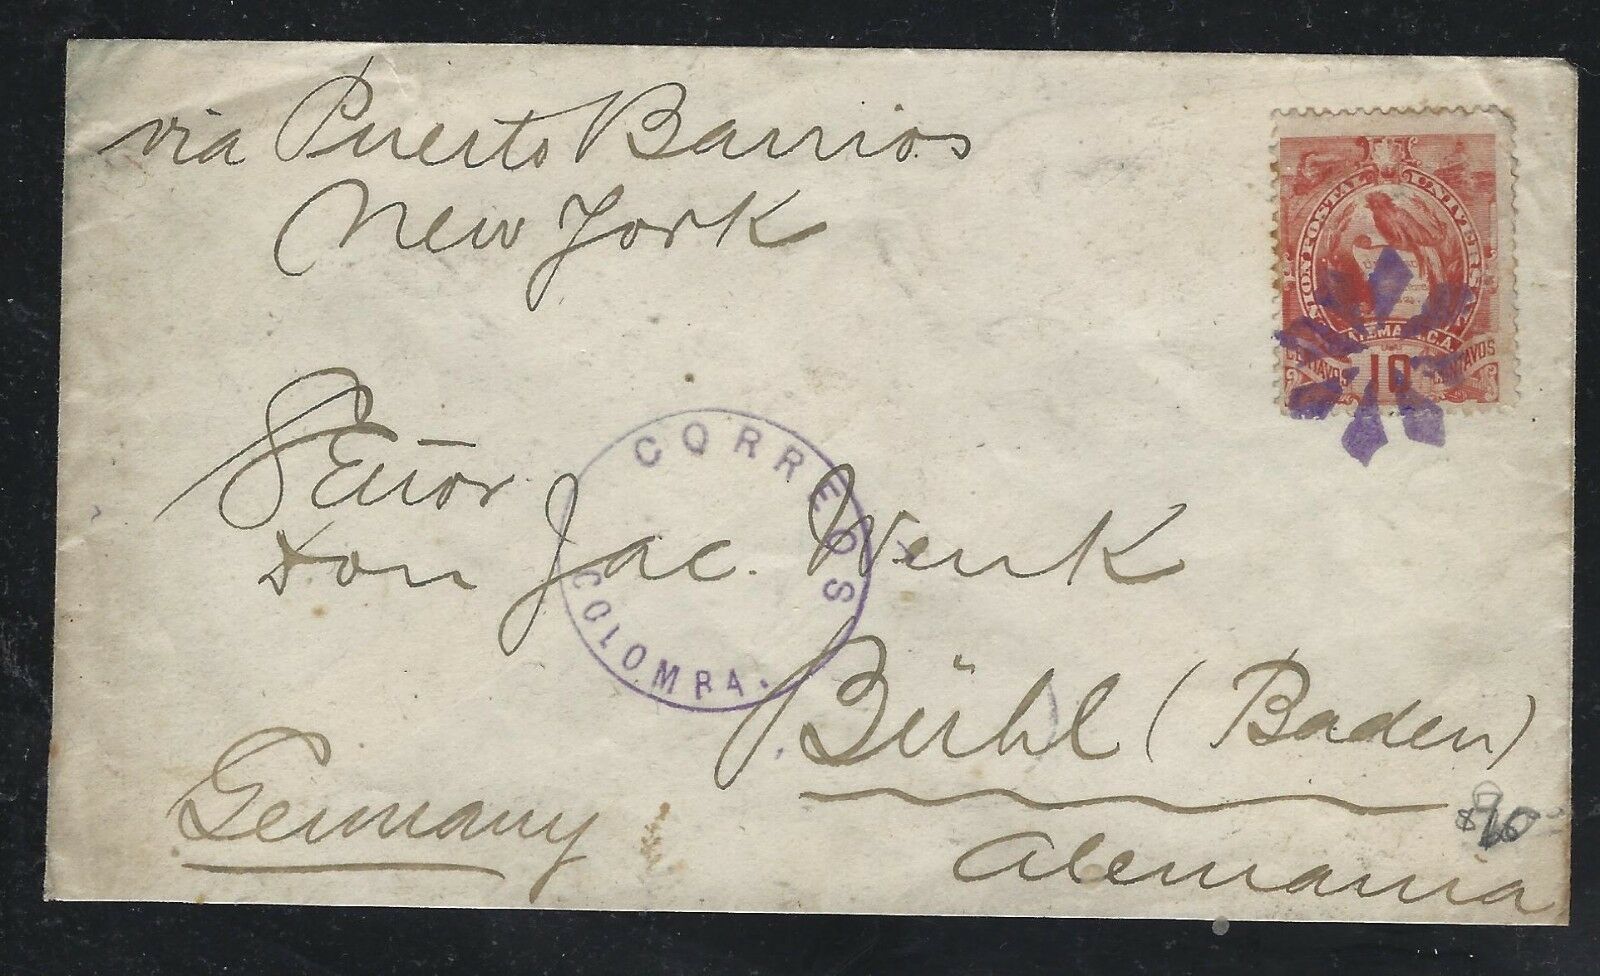 via Puerto Barrios
New York
UNION POSTAL UNIVERSAL
GUATEMALA C.A.
CENTAVOS 10 CENTAVOS
CORREOS
COLOMBA.
Señor
Don Jac. Wenk
Bühl (Baden)
Germany
Alemania